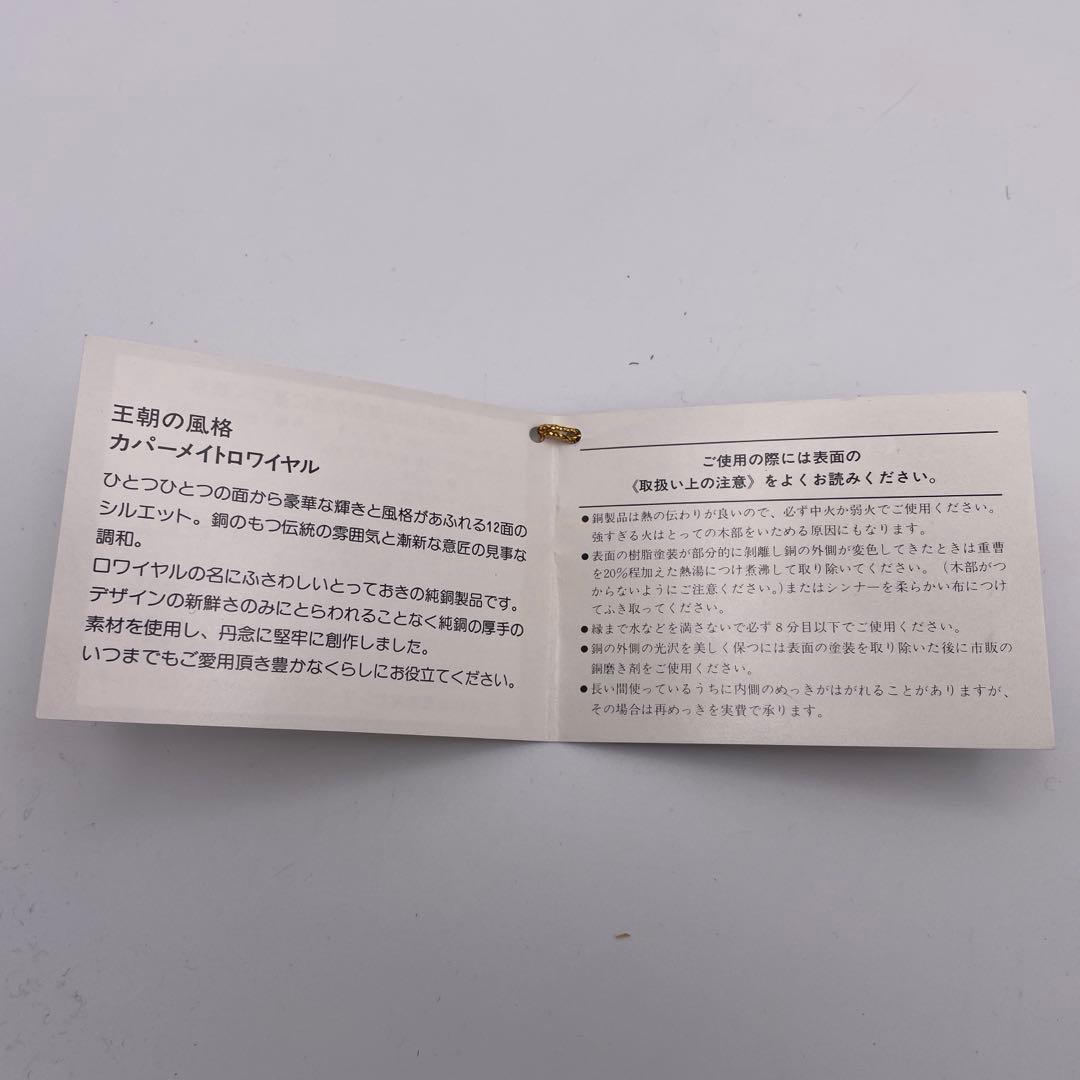 王朝の風格
カパーメイトロワイヤル
ひとつひとつの面から豪華な輝きと風格があふれる12面の
シルエット。銅のもつ伝統の雰囲気と漸新な意匠の見事な
調和。
ロワイヤルの名にふさわしいとっておきの純銅製品です。
デザインの新鮮さのみにとらわれることなく純銅の厚手の
素材を使用し、丹念に堅牢に創作しました。
いつまでもご愛用頂き豊かなくらしにお役立てください。
ご使用の際には表面の
《取扱い上の注意》をよくお読みください。
●銅製品は熱の伝わりが良いので、必ず中火か弱火でご使用ください。
強すぎる火はとっての木部をいためる原因にもなります。
●表面の樹脂塗装が部分的に剥離し銅の外側が変色してきたときは重曹
を20%程加えた熱湯につけ煮沸して取り除いてください。（木部がつ
からないようにご注意ください。）またはシンナーを柔らかい布につけ
てふき取ってください。
●縁まで水などを満さないで必ず8分目以下でご使用ください。
●銅の外側の光沢を美しく保つには表面の塗装を取り除いた後に市販の
銅磨き剤をご使用ください。
●長い間使っているうちに内側のめっきがはがれることがありますが、
その場合は再めっきを実費で承ります。